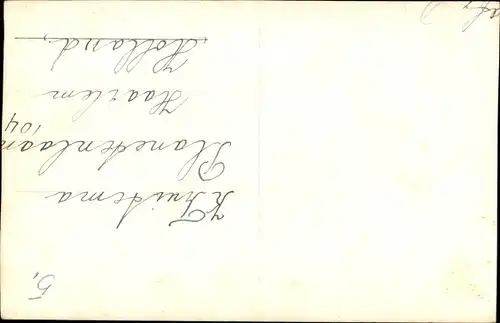 K Thuidema
Planetenlaan
104
Haarlem
Holland,
5,